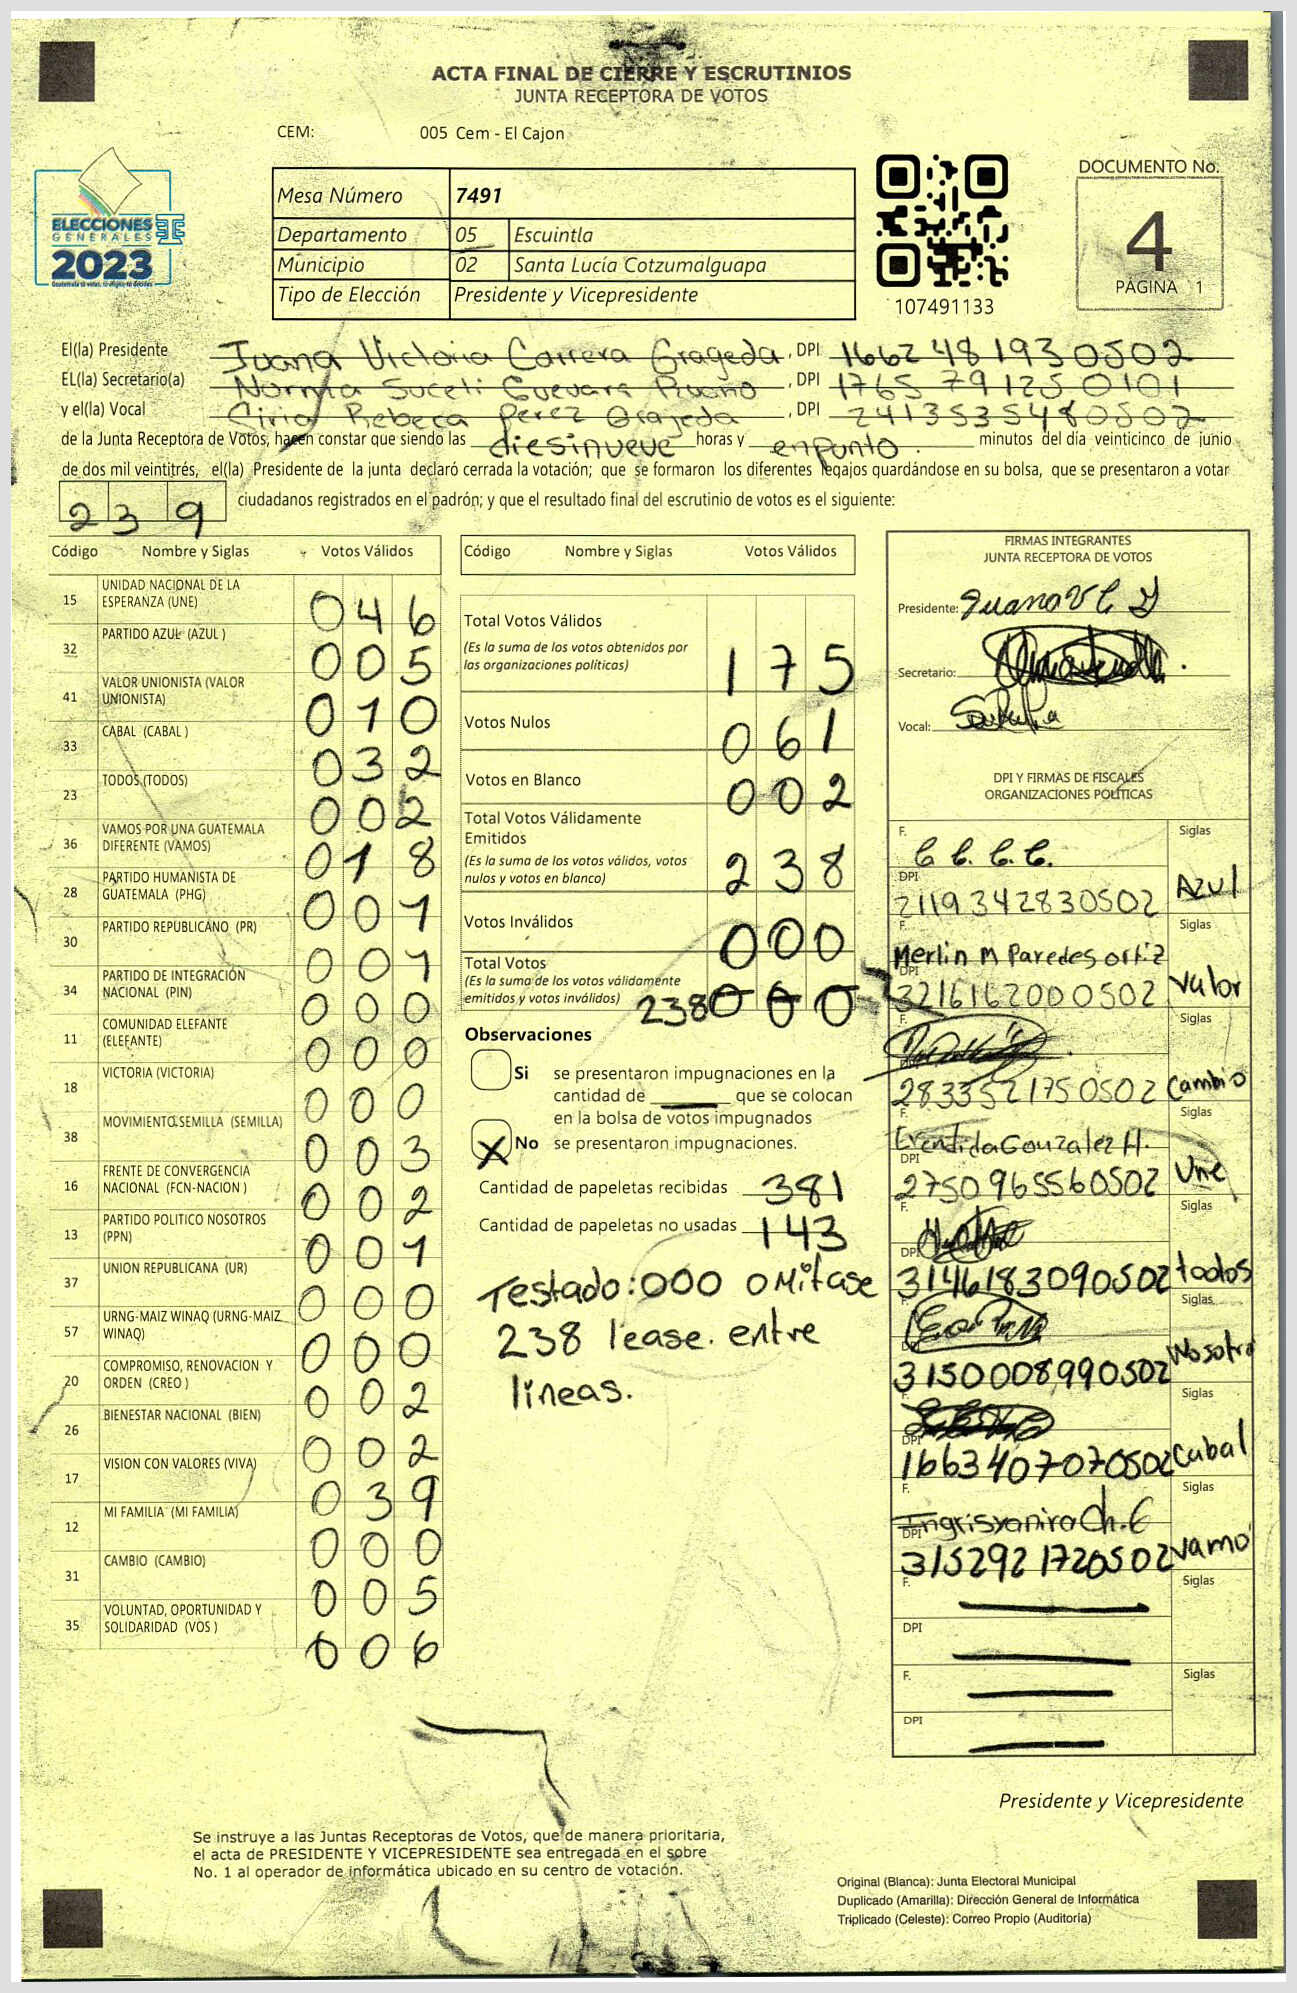 ACTA FINAL DE CIERRE Y ESCRUTINIOS
JUNTA RECEPTORA DE VOTOS
CEM: 005 Cem - El Cajon
ELECCIONES
GENERALES
2023
Mesa Número 7491
Departamento 05 Escuintla
Municipio 02 Santa Lucía Cotzumalguapa
Tipo de Elección Presidente y Vicepresidente
107491133
DOCUMENTO No.
4
PÁGINA 1
El(la) Presidente Juana Victoria Carrera Grageda, DPI 1662481930502
EL(la) Secretario(a) Norma Suceli Guevara Ruano, DPI 1765791250101
y el(la) Vocal Siria Rebeca Perez Grajeda, DPI 2413535480502
de la Junta Receptora de Votos, hacen constar que siendo las diesinueve horas y enpunto minutos del día veinticinco de junio
de dos mil veintitrés, el(la) Presidente de la junta declaró cerrada la votación; que se formaron los diferentes legajos guardándose en su bolsa, que se presentaron a votar
239 ciudadanos registrados en el padrón; y que el resultado final del escrutinio de votos es el siguiente:
Código Nombre y Siglas Votos Válidos
15 UNIDAD NACIONAL DE LA ESPERANZA (UNE) 046
32 PARTIDO AZUL (AZUL ) 005
41 VALOR UNIONISTA (VALOR UNIONISTA) 010
33 CABAL (CABAL ) 032
23 TODOS (TODOS) 002
36 VAMOS POR UNA GUATEMALA DIFERENTE (VAMOS) 018
28 PARTIDO HUMANISTA DE GUATEMALA (PHG) 001
30 PARTIDO REPUBLICANO (PR) 001
34 PARTIDO DE INTEGRACIÓN NACIONAL (PIN) 000
11 COMUNIDAD ELEFANTE (ELEFANTE) 000
18 VICTORIA (VICTORIA) 000
38 MOVIMIENTO SEMILLA (SEMILLA) 003
16 FRENTE DE CONVERGENCIA NACIONAL (FCN-NACION ) 002
13 PARTIDO POLITICO NOSOTROS (PPN) 001
37 UNION REPUBLICANA (UR) 000
57 URNG-MAIZ WINAQ (URNG-MAIZ WINAQ) 000
20 COMPROMISO, RENOVACION Y ORDEN (CREO ) 002
26 BIENESTAR NACIONAL (BIEN) 002
17 VISION CON VALORES (VIVA) 039
12 MI FAMILIA (MI FAMILIA) 000
31 CAMBIO (CAMBIO) 005
35 VOLUNTAD, OPORTUNIDAD Y SOLIDARIDAD (VOS ) 006
Código Nombre y Siglas Votos Válidos
Total Votos Válidos
(Es la suma de los votos obtenidos por
las organizaciones políticas) 175
Votos Nulos 061
Votos en Blanco 002
Total Votos Válidamente
Emitidos
(Es la suma de los votos válidos, votos
nulos y votos en blanco) 238
Votos Inválidos 000
Total Votos
(Es la suma de los votos válidamente
emitidos y votos inválidos) 238 000
Observaciones
Si se presentaron impugnaciones en la
cantidad de ____ que se colocan
en la bolsa de votos impugnados
X No se presentaron impugnaciones.
Cantidad de papeletas recibidas 381
Cantidad de papeletas no usadas 143
Testado: 000 OMitase
238 lease. entre
lineas.
FIRMAS INTEGRANTES
JUNTA RECEPTORA DE VOTOS
Presidente: Juana V C G
Secretario:
Vocal:
DPI Y FIRMAS DE FISCALES
ORGANIZACIONES POLÍTICAS
F. C. C. C. C. Siglas
DPI 2119342830502 AZUl
F. Merlin M Paredes ortiz Siglas
DPI 3216162000502 valor
F. Siglas
2833521750502 Cambio
F. Gonzalez H. Siglas
DPI 2750965560502 Une
F. Siglas
DPI 3146183090502 todos
F. Siglas
DPI 3150008990502 Nosotro
F. Siglas
DPI 1663407070502 Cabal
F. Ingrisyanira Ch. C Siglas
DPI 3152921720502 vamo
F. Siglas
DPI
F. Siglas
DPI
Presidente y Vicepresidente
Se instruye a las Juntas Receptoras de Votos, que de manera prioritaria,
el acta de PRESIDENTE Y VICEPRESIDENTE sea entregada en el sobre
No. 1 al operador de informática ubicado en su centro de votación.
Original (Blanca): Junta Electoral Municipal
Duplicado (Amarilla): Dirección General de Informática
Triplicado (Celeste): Correo Propio (Auditoría)